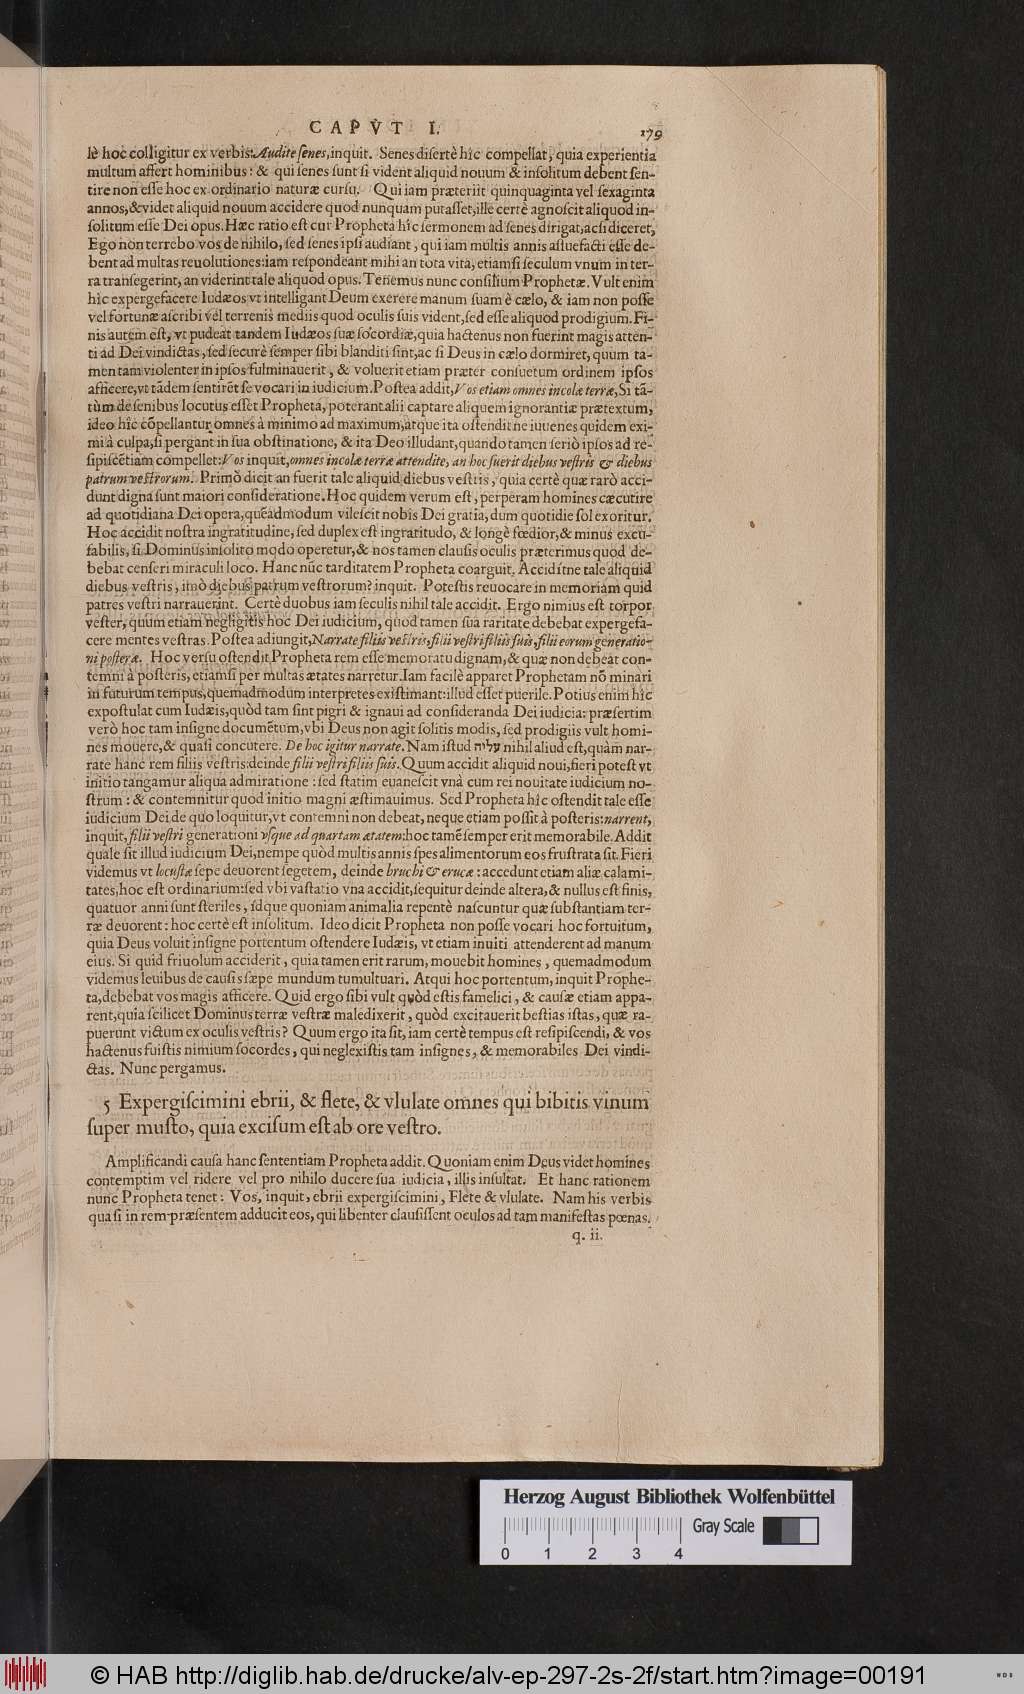 CAPVT I. 179
lè hoc colligitur ex verbis: Audite senes, inquit. Senes disertè hîc compellat, quia experientia
multum affert hominibus: & qui senes sunt si vident aliquid nouum & insolitum debent sen-
tire non esse hoc ex ordinario naturæ cursu. Qui iam præteriit quinquaginta vel sexaginta
annos, & videt aliquid nouum accidere quod nunquam putasset, ille certè agnoscit aliquod in-
solitum esse Dei opus. Hæc ratio est cur Propheta hîc sermonem ad senes dirigat, ac si diceret,
Ego non terrebo vos de nihilo, sed senes ipsi audiant, qui iam multis annis assuefacti esse de-
bent ad multas reuolutiones: iam respondeant mihi an tota vita, etiamsi seculum vnum in ter-
ra transegerint, an viderint tale aliquod opus. Tenemus nunc consilium Prophetæ. Vult enim
hîc expergefacere Iudæos vt intelligant Deum exerere manum suam è cælo, & iam non posse
vel fortunæ ascribi vel terrenis mediis quod oculis suis vident, sed esse aliquod prodigium. Fi-
nis autem est, vt pudeat tandem Iudæos suæ socordiæ, quia hactenus non fuerint magis atten-
ti ad Dei vindictas, sed securè semper sibi blanditi sint, ac si Deus in cælo dormiret, quum ta-
men tam violenter in ipsos fulminauerit, & voluerit etiam præter consuetum ordinem ipsos
afficere, vt tãdem sentirẽt se vocari in iudicium. Postea addit, Vos etiam omnes incolæ terræ, Si tã-
tùm de senibus locutus esset Propheta, poterant alii captare aliquem ignorantiæ prætextum,
ideo hîc cõpellantur omnes à minimo ad maximum, atque ita ostendit ne iuuenes quidem exi-
mi à culpa, si pergant in sua obstinatione, & ita Deo illudant, quando tamen seriò ipsos ad re-
sipiscẽtiam compellet: Vos inquit, omnes incolæ terræ attendite, an hoc fuerit diebus vestris & diebus
patrum vestrorum. Primò dicit an fuerit tale aliquid diebus vestris, quia certè quæ rarò acci-
dunt digna sunt maiori consideratione. Hoc quidem verum est, perperam homines cæcutire
ad quotidiana Dei opera, quẽadmodum vilescit nobis Dei gratia, dum quotidie sol exoritur.
Hoc accidit nostra ingratitudine, sed duplex est ingratitudo, & longè fœdior, & minus excu-
sabilis, si Dominus insolito modo operetur, & nos tamen clausis oculis præterimus quod de-
bebat censeri miraculi loco. Hanc nũc tarditatem Propheta coarguit. Acciditne tale aliquid
diebus vestris, imò diebus patrum vestrorum? inquit. Potestis reuocare in memoriam quid
patres vestri narrauerint. Certè duobus iam seculis nihil tale accidit. Ergo nimius est torpor
vester, quum etiam negligitis hoc Dei iudicium, quod tamen sua raritate debebat expergefa-
cere mentes vestras. Postea adiungit, Narrate filiis vestris, filii vestri filiis suis, filii eorum generatio-
ni posteræ. Hoc versu ostendit Propheta rem esse memoratu dignam, & quæ non debeat con-
temni à posteris, etiamsi per multas ætates narretur. Iam facilè apparet Prophetam nõ minari
in futurum tempus, quemadmodum interpretes existimant: illud esset puerile. Potius enim hîc
expostulat cum Iudæis, quòd tam sint pigri & ignaui ad consideranda Dei iudicia: præsertim
verò hoc tam insigne documẽtum, vbi Deus non agit solitis modis, sed prodigiis vult homi-
nes mouere, & quasi concutere. De hoc igitur narrate. Nam istud עליה nihil aliud est, quàm nar-
rate hanc rem filiis vestris: deinde filii vestri filiis suis. Quum accidit aliquid noui, fieri potest vt
initio tangamur aliqua admiratione: sed statim euanescit vnà cum rei nouitate iudicium no-
strum: & contemnitur quod initio magni æstimauimus. Sed Propheta hîc ostendit tale esse
iudicium Dei de quo loquitur, vt contemni non debeat, neque etiam possit à posteris: narrent,
inquit, filii vestri generationi vsque ad quartam ætatem: hoc tamẽ semper erit memorabile. Addit
quale sit illud iudicium Dei, nempe quòd multis annis spes alimentorum eos frustrata sit. Fieri
videmus vt locustæ sepe deuorent segetem, deinde bruchi & erucæ: accedunt etiam aliæ calami-
tates, hoc est ordinarium: sed vbi vastatio vna accidit, sequitur deinde altera, & nullus est finis,
quatuor anni sunt steriles, idque quoniam animalia repentè nascuntur quæ substantiam ter-
ræ deuorent: hoc certè est insolitum. Ideo dicit Propheta non posse vocari hoc fortuitum,
quia Deus voluit insigne portentum ostendere Iudæis, vt etiam inuiti attenderent ad manum
eius. Si quid friuolum acciderit, quia tamen erit rarum, mouebit homines, quemadmodum
videmus leuibus de causis sæpe mundum tumultuari. Atqui hoc portentum, inquit Prophe-
ta, debebat vos magis afficere. Quid ergo sibi vult quòd estis famelici, & causæ etiam appa-
rent, quia scilicet Dominus terræ vestræ maledixerit, quòd excitauerit bestias istas, quæ ra-
puerunt victum ex oculis vestris? Quum ergo ita sit, iam certè tempus est resipiscendi, & vos
hactenus fuistis nimium socordes, qui neglexistis tam insignes, & memorabiles Dei vindi-
ctas. Nunc pergamus.
5 Expergiscimini ebrii, & flete, & vlulate omnes qui bibitis vinum
super musto, quia excisum est ab ore vestro.
Amplificandi causa hanc sententiam Propheta addit. Quoniam enim Deus videt homines
contemptim vel ridere vel pro nihilo ducere sua iudicia, illis insultat. Et hanc rationem
nunc Propheta tenet: Vos, inquit, ebrii expergiscimini, Flete & vlulate. Nam his verbis
quasi in rem præsentem adducit eos, qui libenter clausissent oculos ad tam manifestas pœnas.
q. ii.
Herzog August Bibliothek Wolfenbüttel
0 1 2 3 4 Gray Scale
© HAB http://diglib.hab.de/drucke/alv-ep-297-2s-2f/start.htm?image=00191